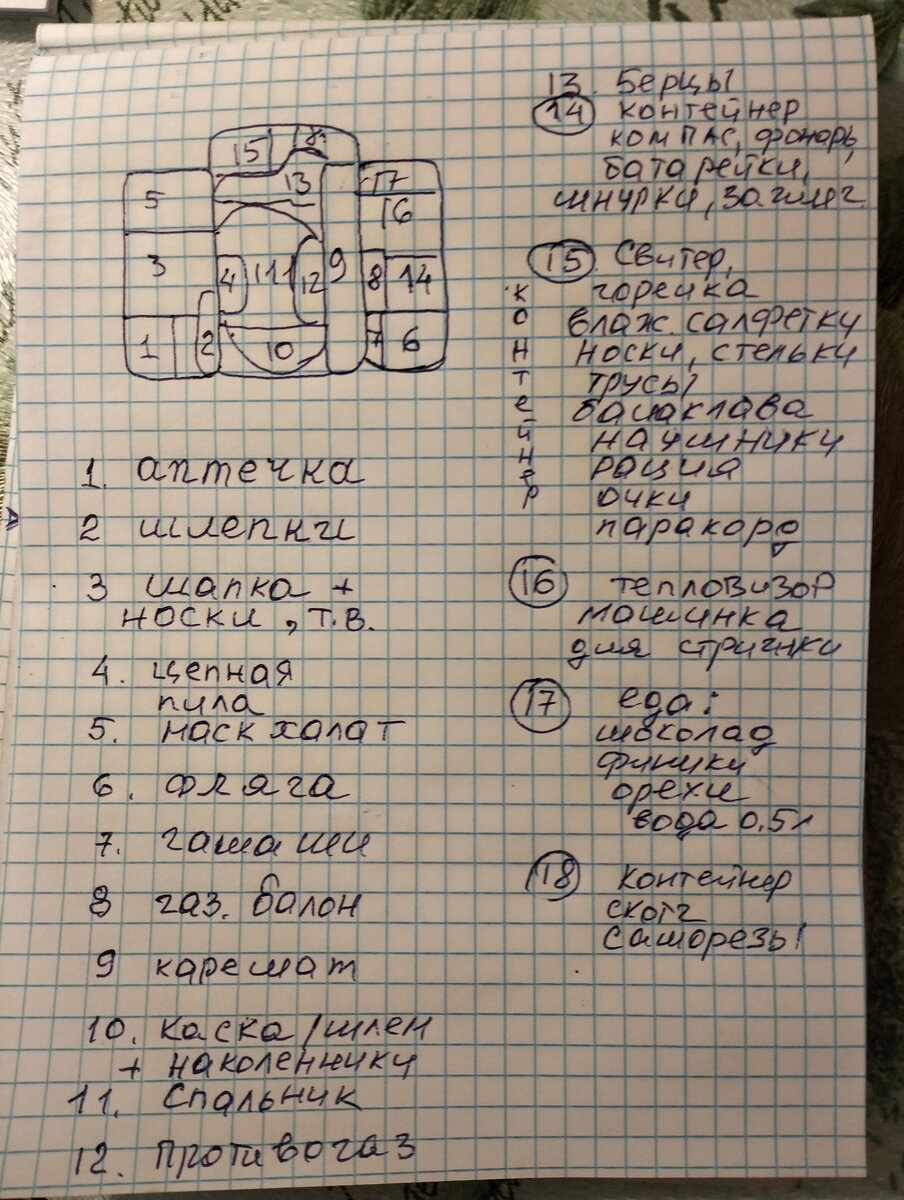 15 18
5 13 17
16
3 4 11 12 9 8 14
1 2 10 7 6
1. аптечка
2 шлепки
3 шапка +
носки, т.в.
4. цепная
пила
5. маск халат
6. фляга
7. гамаши
8 газ. балон
9 каремат
10. каска/шлем
+ наколенники
11. Спальник
12. Противогаз
13. Берцы
14 контейнер
компас, фонарь,
батарейки,
шнурки,
15. Свитер,
горелка
влаж. салфетки
носки, стельки
трусы
балаклава
наушники
рация
очки
паракорд
контейнер
16 тепловизор
машинка
для стрижки
17 еда:
шоколад
финики
орехи
вода 0,5л
18 контейнер
скотч
саморезы